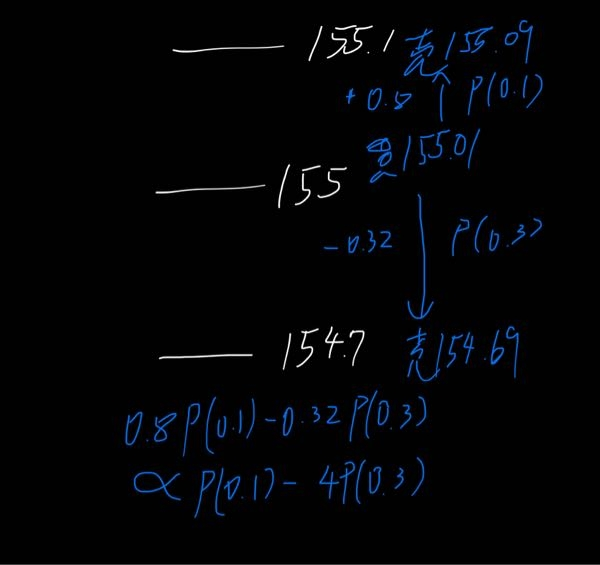 155.1 売155.09
+0.8 ↑ P(0.1)
買155.01
155
-0.32 ↓ P(0.3)
154.7 売154.69
0.8P(0.1)-0.32P(0.3)
∝ P(0.1)-4P(0.3)